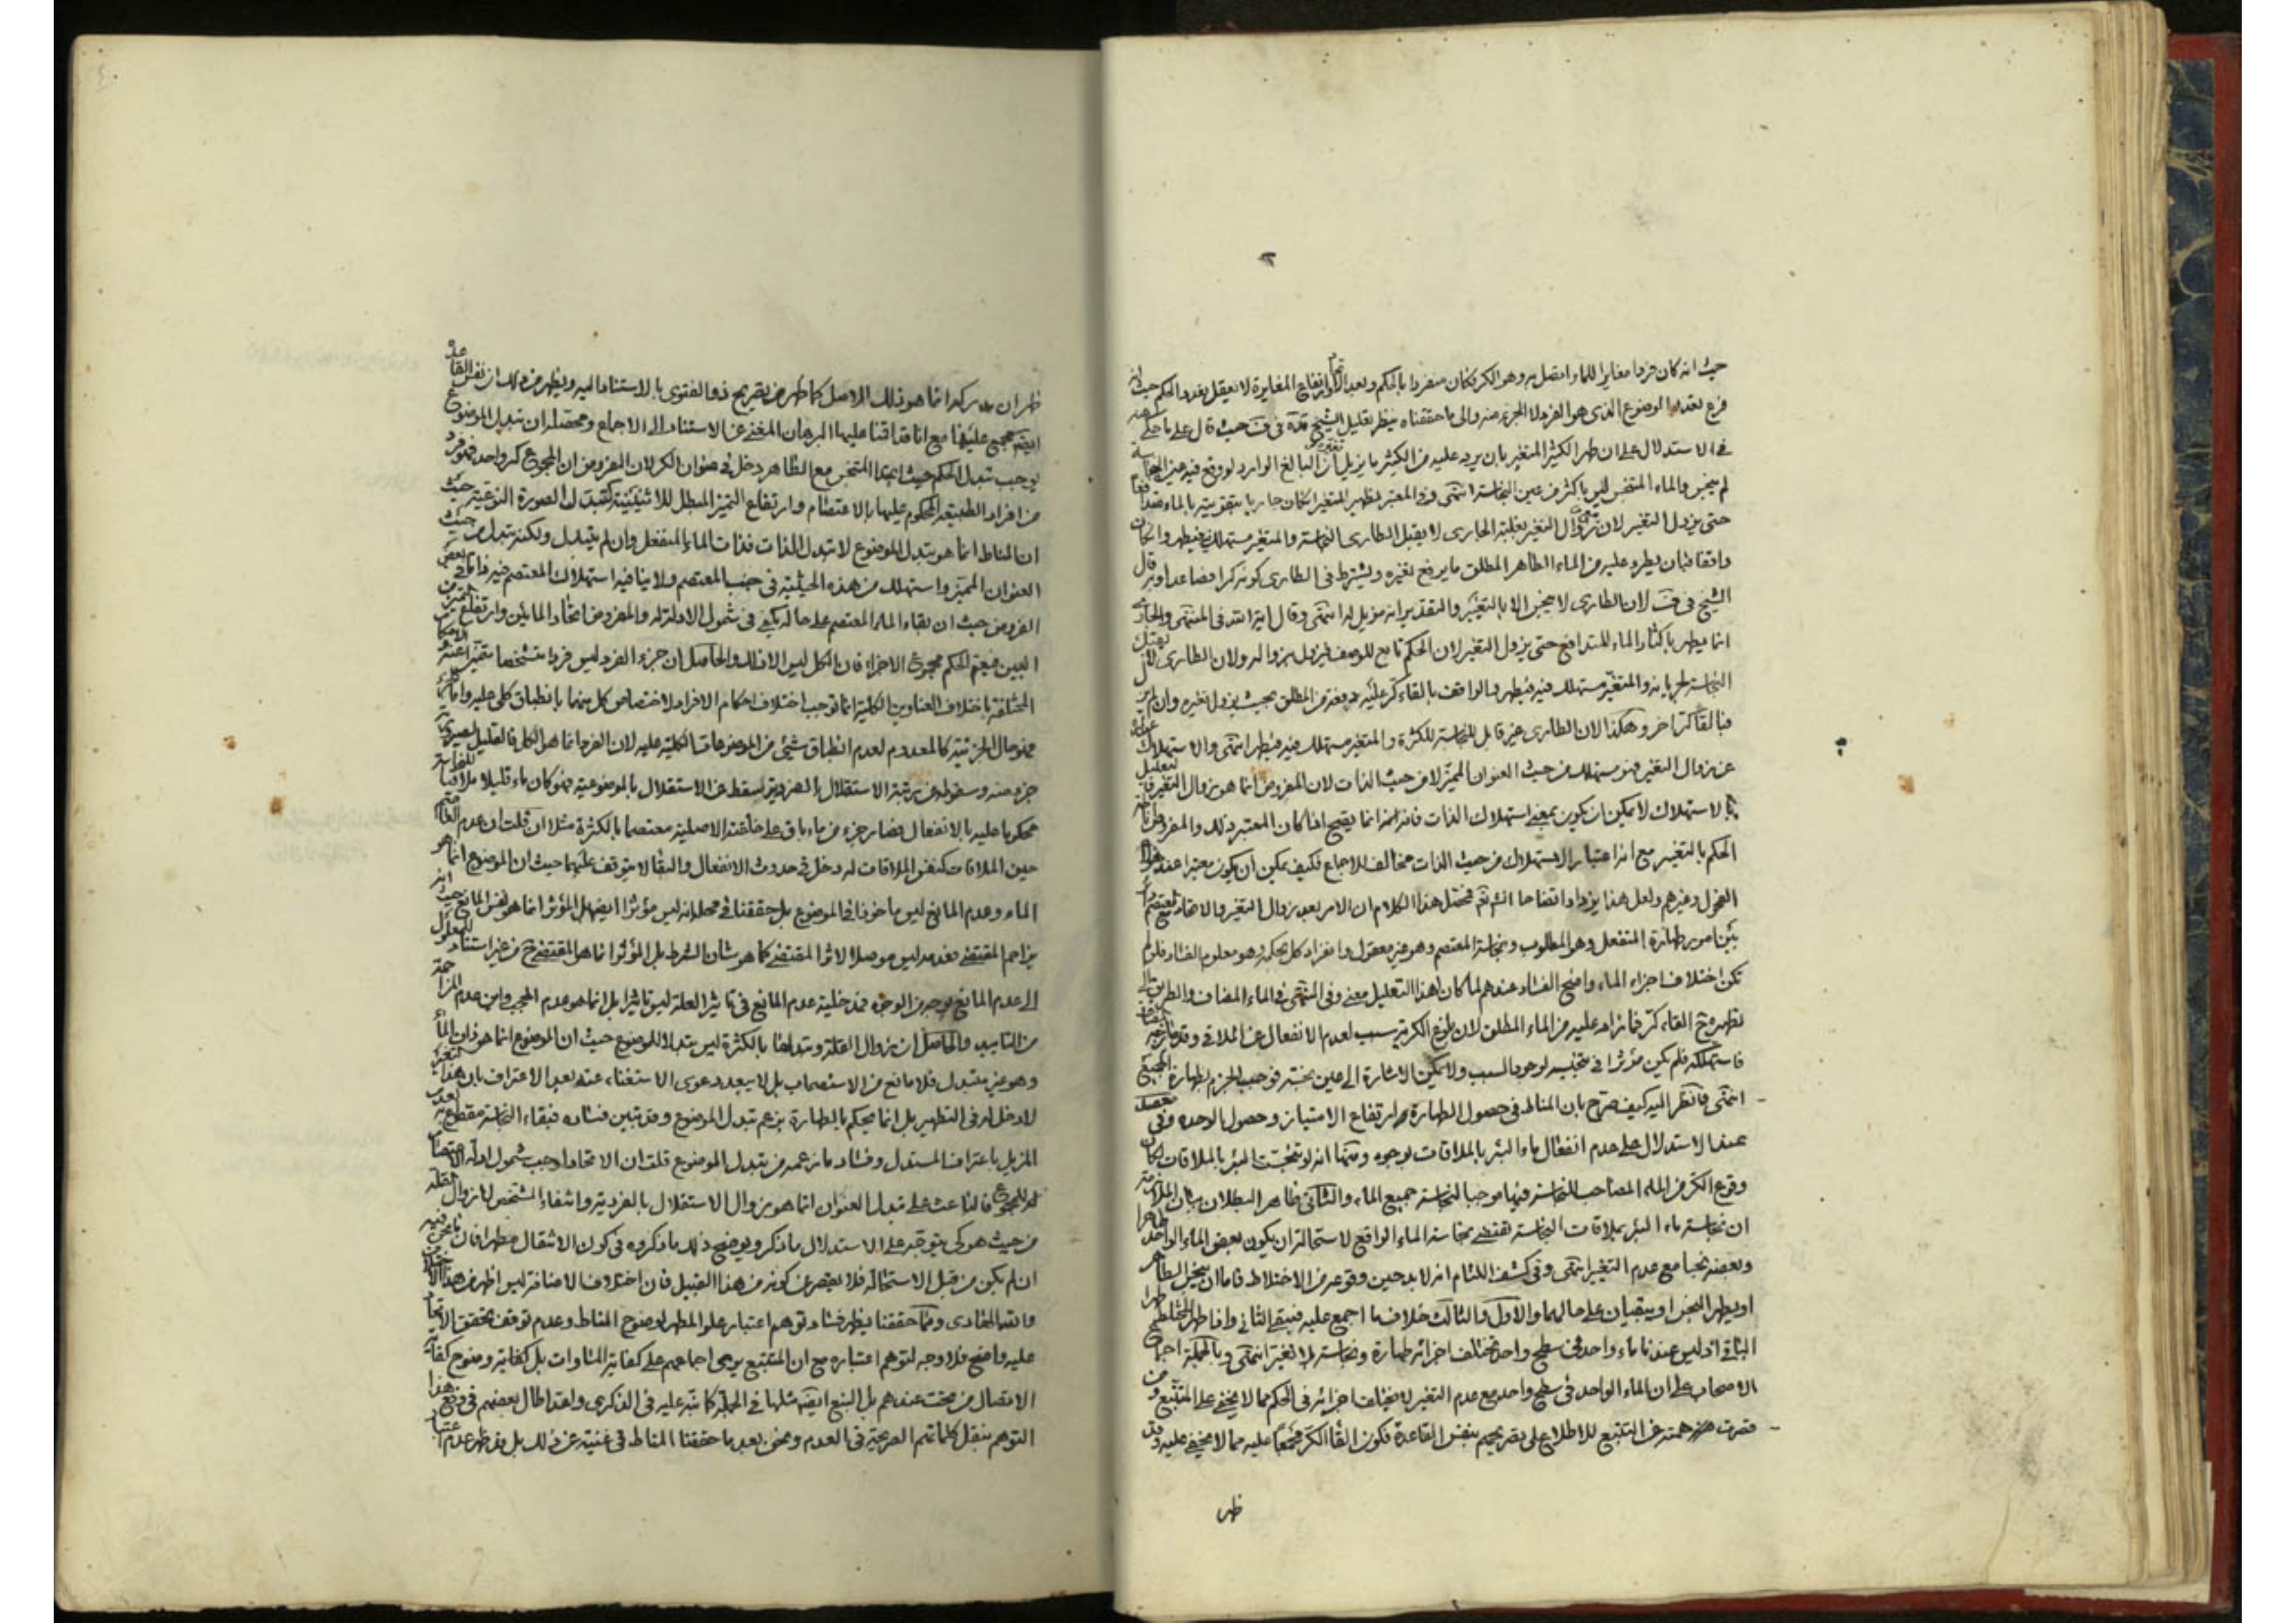 حيث انه كان فردا مغايرا للماء اتصل به وهو الكر فكان منفردا بالحكم وبعد الاتحاد وارتفاع المغايرة لا يعقل تعدد الحكم حيث انه
فرع تعدد الموضوع الذى هو الفرد لا الجزء منه والى ما حققناه ينظر تعليل الشيخ قده فى ف حيث قال على ما حكى عنه
فى الاستدلال على ان طهر الكثير المتغير بان يرد عليه من الكثير ما يزيل تغيره ان البالغ الوارد لو وقع فيه عين النجاسة
لم ينجس والماء المتنجس ليس باكثر من عين النجاسة انتهى وفى المعتبر تطهير المتغير ان كان جاريا بتقويته بالماء متدافعا
حتى يزول التغير لان زوال التغير بغلبة الجارى لا يقبل الطارى النجاسة والمتغير مستهلك فيطهر وان كان
واقفا فبان يطرء عليه من الماء الطاهر المطلق ما يرفع تغيره ويشترط فى الطارى كونه كرا فصاعدا وبه قال
الشيخ فى ف لان الطارى لا ينجس الا بالتغير والتقدير انه مزيل له انتهى وقال اية الله فى المنتهى والجارى
انما يطهر باكثار الماء المتدافع حتى يزول التغير لان الحكم تابع للوصف فيزول بزواله ولان الطارى لا يقبل
النجاسة لجريانه والمتغير مستهلك فيه فيطهر والواقف بالقاء كر عليه دفعة من المطلق بحيث يزول تغيره وان لم يزل
فبالقاء كر اخر وهكذا لان الطارى غير قابل للنجاسة للكثرة والمتغير مستهلك فيه فيطهر انتهى والاستهلاك عبارة
عن زوال التغير فهو مستهلك من حيث العنوان المميز لا من حيث الذات لان المفروض انما هو زوال التغير فالتعليل
بالاستهلاك لا يمكن ان يكون بمعنى استهلاك الذات فانه انما يصح اذا كان المعتبر ذلك والمفروض اناطة
الحكم بالتغير مع ان اعتبار الاستهلاك من حيث الذات مخالف للاجماع فكيف يمكن ان يكون معتبرا عند هؤلاء
الفحول وغيرهم ولعل هذا يزداد اتضاحا انشاء الله تعالى فمحصل هذا الكلام ان الامر بعد زوال التغير والاتحاد مع المعتصم دائر
بين امور طهارة المنفعل وهو المطلوب ونجاسة المعتصم وهو غير معقول وانفراد كل بحكمه وهو معلوم الفساد فلو لم
تكن اختلاف اجزاء الماء واضح الفساد عندهم لما كان لهذا التعليل معنى وفى المنتهى فى الماء المضاف والطريق الى
تطهيره ح القاء كر فما زاد عليه من الماء المطلق لان بلوغ الكرية سبب لعدم الانفعال عن الملاقى وقد مازجه المضاف
فاستهلكه فلم يكن مؤثرا فى تنجيسه لوجود السبب ولا يمكن الاشارة الى عين نجسة فوجب الجزم بطهارة الجميع
انتهى فانظر اليه كيف صرح بان المناط فى حصول الطهارة هو ارتفاع الامتياز وحصول الوحدة وفى
عند الاستدلال على عدم انفعال ماء البئر بالملاقات بوجوه ومنها انه لو تنجست البئر بالملاقات لكان
وقوع الكر من الماء المصاحب للنجاسة فيها موجبا لنجاسة جميع الماء والثانى ظاهر البطلان بيان الملازمة
ان نجاسة ماء البئر بملاقات النجاسة تقتضى نجاسة الماء الواقع لاستحالة ان يكون بعض الماء الواحد طاهرا
وبعضه نجسا مع عدم التغير انتهى وفى كشف اللثام انه لا بد حين وقوعه من الاختلاط فاما ان ينجس الطاهر
او يطهر النجس او يبقيان على حالهما والاول والثالث خلاف ما اجمع عليه فبقى الثانى واذا طهر المختلط طهر
الباقى اذ ليس عندنا ماء واحد فى سطح واحد تختلف اجزائه طهارة ونجاسة بلا تغير انتهى وبالجملة اجماع
الاصحاب على ان الماء الواحد فى سطح واحد مع عدم التغير لا يختلف اجزائه فى الحكم مما لا يخفى على المتتبع ومن
قصرت همته عن التتبع للاطلاع على تصريحهم بنفس القاعدة فكون القاء الكر مجمعا عليه مما لا يخفى عليه وقد
ظهر
ظهر ان مدركه انما هو ذلك الاصل كما ظهر من تصريح ذوى الفتوى بالاستناد اليه ويظهر من ذلك ان نفس القاعدة
ايضا مجمع عليها مع انا قد اقمنا عليها البرهان المغنى عن الاستناد الى الاجماع ومحصله ان تبدل الموضوع
يوجب تبدل الحكم حيث ان هذا المتنجس مع الطاهر دخل فى عنوان الكر لان المفروض ان المجموع كر واحد فهو فرد
من افراد الطبيعة المحكوم عليها بالاعتصام وارتفاع التميز المبطل للاثنينية كتبدل الصورة النوعية حيث
ان المناط انما هو تبدل الموضوع لا تبدل الذات فذات الماء المنفعل وان لم يتبدل ولكنه تبدل من حيث
العنوان المميز واستهلك من هذه الحيثية فى جنب المعتصم ولا ينافيه استهلاك المعتصم فيه ذاتا فى بعض
الفروض حيث ان بقاء الماء المعتصم على حاله يكفى فى شمول الادلة له والمفروض اتحاد المائين وارتفاع التميز من
البين فيعم الحكم مجموع الاجزاء فان الكل ليس الا ذلك والحاصل ان جزء الفرد ليس فردا متشخصا متميزا عنه والاحكام
المختلفة باختلاف العناوين الكلية انما توجب اختلاف احكام الافراد لاختصاص كل منها بانطباق كلى عليه واما الجزء
فهو حال الجزئية كالمعدوم لعدم انطباق شئ من الموضوعات الكلية عليه لان الفرد انما هو الكل فالقليل لصيرورته
جزء منه وسقوطه عن مرتبة الاستقلال بالفردية يسقط عن الاستقلال بالموضوعية فهو كان ماء قليلا ملاقيا للنجاسة
محكوما عليه بالانفعال فصار جزء من ماء باق على خلقته الاصلية معتصما بالكثرة مثلا ان قلت ان عدم القلة
حين الملاقات كنفس الملاقات له دخل فى حدوث الانفعال والبقاء لا يتوقف عليهما حيث ان الموضوع انما هو
الماء وعدم المانع ليس ماخوذا فى الموضوع بل حققنا فى محله انه ليس مؤثرا ايضا بل المؤثر انما هو نفس المانع حيث انه
يزاحم المقتضى فعدمه ليس موصلا لاثر المقتضى كما هو شان الشرط بل المؤثر انما هو المقتضى ح من غير استناد المعلول
الى عدم المانع بوجه من الوجوه فمدخلية عدم المانع فى تاثير العلة ليس تاثيرا بل انما هو عدم الحجب واين عدم المزاحمة
من التاثير والحاصل ان زوال القلة وتبدلها بالكثرة ليس تبدلا للموضوع حيث ان الموضوع انما هو ذات الماء
وهو غير متبدل فلا مانع من الاستصحاب بل لا يبعد دعوى الاستغناء عنه بعد الاعتراف بان هذا التغير
لا دخل له فى التطهير بل انما يحكم بالطهارة بزعم تبدل الموضوع وقد تبين فساده فبقاء النجاسة مقطوع به
المزيل باعتراف المستدل وفساد ما زعمه من تبدل الموضوع قلت ان الاتحاد اوجب شمول ادلة الاعتصام
له للمجموع فالباعث على تبدل العنوان انما هو زوال الاستقلال بالفردية وانتفاء التشخص لا زوال القلة
من حيث هو كى يتوجه على الاستدلال ما ذكر ويوضح ذلك ما ذكروه فى كون الانتقال مطهرا فان ما نحن فيه
ان لم يكن من قبيل الاستحالة فلا يقصر عن كونه من هذا القبيل فان اختلاف الاضافة ليس اظهر من هذا الاختلاف
والله الهادى ومما حققنا يظهر فساد توهم اعتبار علو المطهر لوضوح المناط وعدم توقف تحقق الاتحاد
عليه واضح فلا وجه لتوهم اعتباره مع ان المتتبع يرى اجماعهم على كفاية المساوات بل كفاية وضوح كفاية
الاتصال من تحت عندهم بل النبع ايضا مثلها فى الجملة كما نبه عليه فى الذكرى ولقد اطال بعضهم فى دفع هذا
التوهم بنقل كلماتهم الصريحة فى العدم ونحن بعد ما حققنا المناط فى غنية عن ذلك بل قد ظهر عدم اعتبار